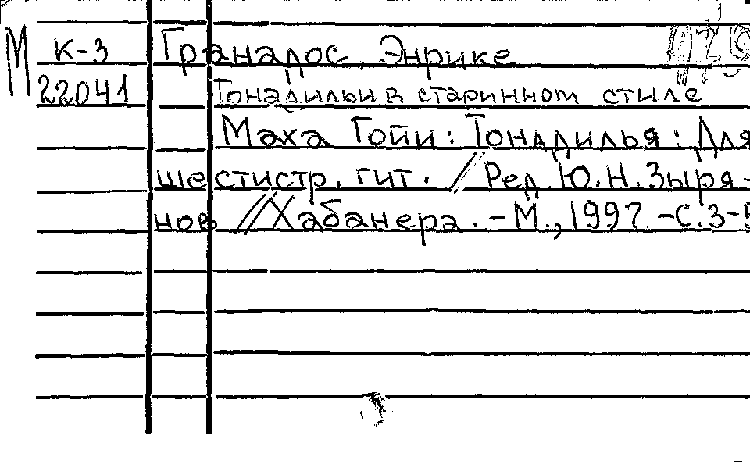 М К-3 Гранадос, Энрике
22041 Тонадильи в старинном стиле
Маха Гойи: Тонадилья: Для
шестистр. гит. / Ред. Ю.Н. Зыря-
нов // Хабанера. - М., 1997 - С. 3-5